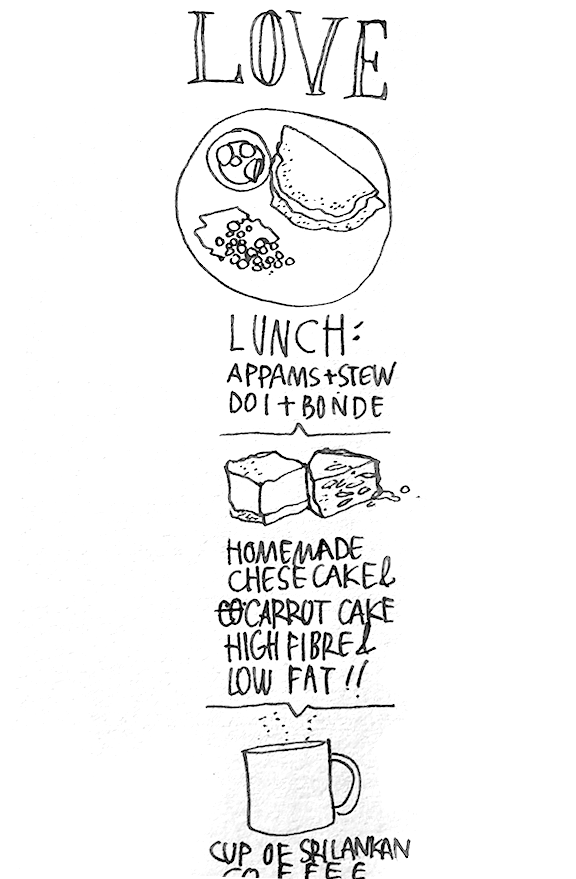 LOVE
LUNCH:
APPAMS+STEW
DOI+BONDE
HOMEMADE
CHESECAKE&
CARROT CAKE
HIGH FIBRE&
LOW FAT!!
CUP OF SRILANKAN
COFFEE